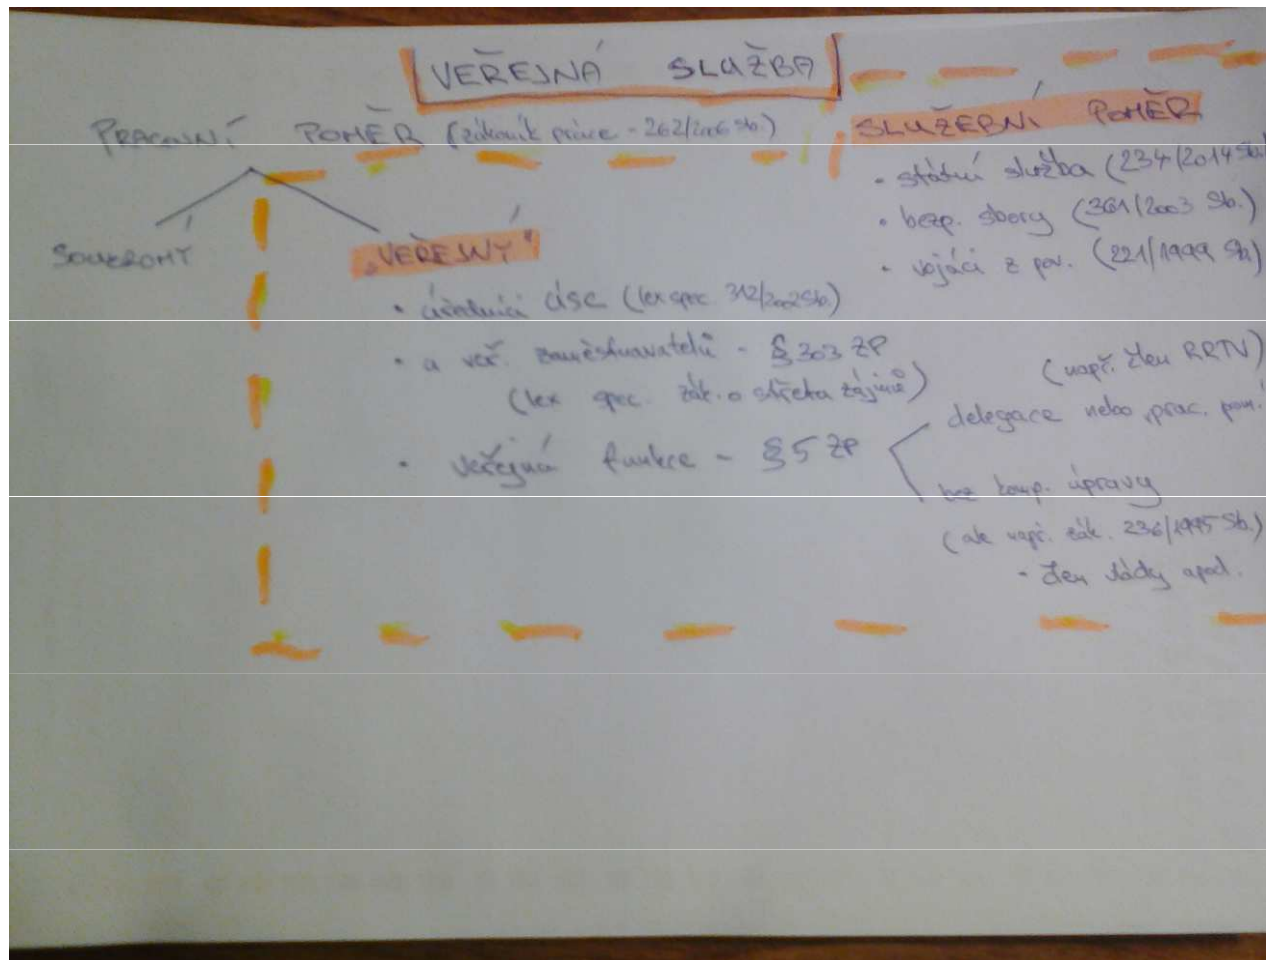 VEŘEJNÁ SLUŽBA
PRACOVNÍ POMĚR (zákoník práce - 262/2006 Sb.)
SOUKROMÝ
„VEŘEJNÝ"
• úředníci ÚSC (lex spec 312/2002 Sb.)
• a veř. zaměstnavatelů - § 303 ZP
(lex spec. zák. o střetu zájmů)
• veřejná funkce - § 5 ZP
(např. člen RRTV)
delegace nebo „prac. pom.
bez komp. úpravy
(ale např. zák. 236/1995 Sb.)
- člen vlády apod.
SLUŽEBNÍ POMĚR
• státní služba (234/2014 Sb.)
• bezp. sbory (361/2003 Sb.)
• vojáci z pov. (221/1999 Sb.)